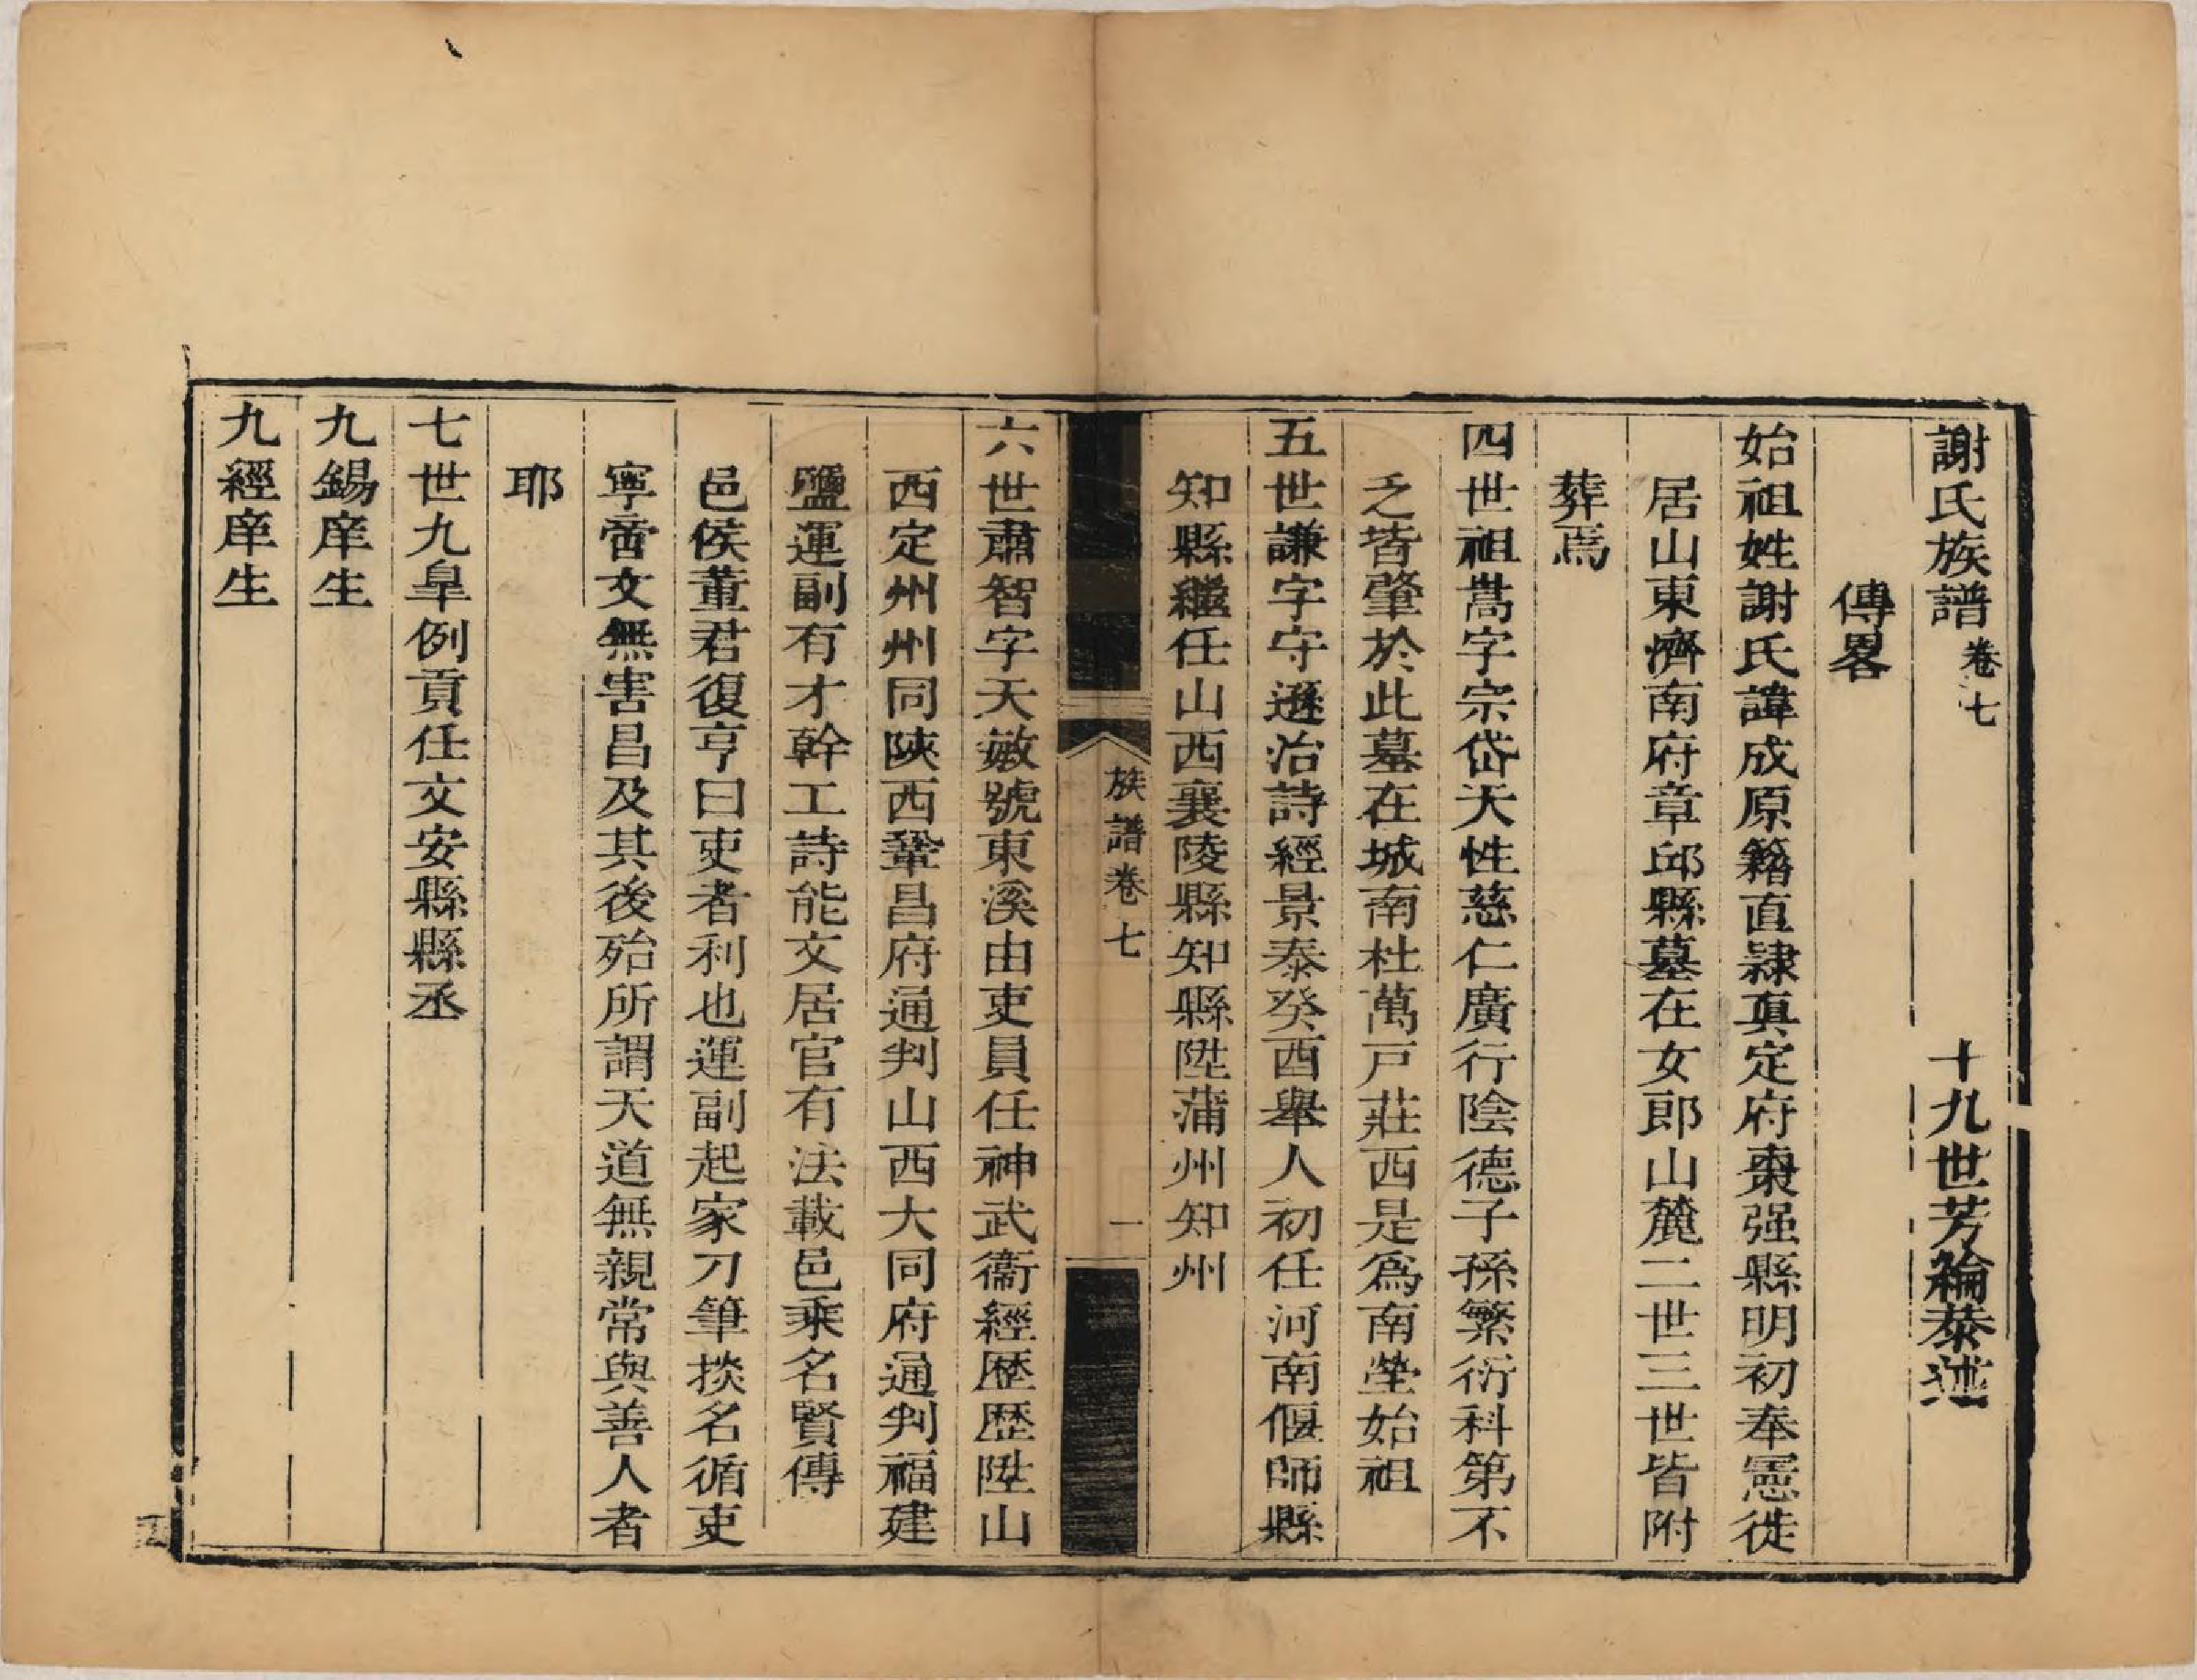 謝氏族譜卷七　　十九世芳綸恭述
傳畧
始祖姓謝氏諱成原籍直隸真定府棗强縣明初奉憲徙
居山東濟南府章邱縣墓在女郎山麓二世三世皆附
葬焉
四世祖嵩字宗岱天性慈仁廣行陰德子孫繁衍科第不
乏皆肇於此墓在城南杜萬戸莊西是爲南塋始祖
五世謙字守遜治詩經景泰癸酉舉人初任河南偃師縣
知縣繼任山西襄陵縣知縣陞蒲州知州
族譜卷七　一
六世肅智字天敏號東溪由吏員任神武衞經歷歷陞山
西定州州同陝西鞏昌府通判山西大同府通判福建
鹽運副有才幹工詩能文居官有法載邑乘名賢傳
邑侯董君復亨曰吏者利也運副起家刀筆掞名循吏
寧啻文無害昌及其後殆所謂天道無親常與善人者
耶
七世九皐例貢任文安縣縣丞
九錫庠生
九經庠生